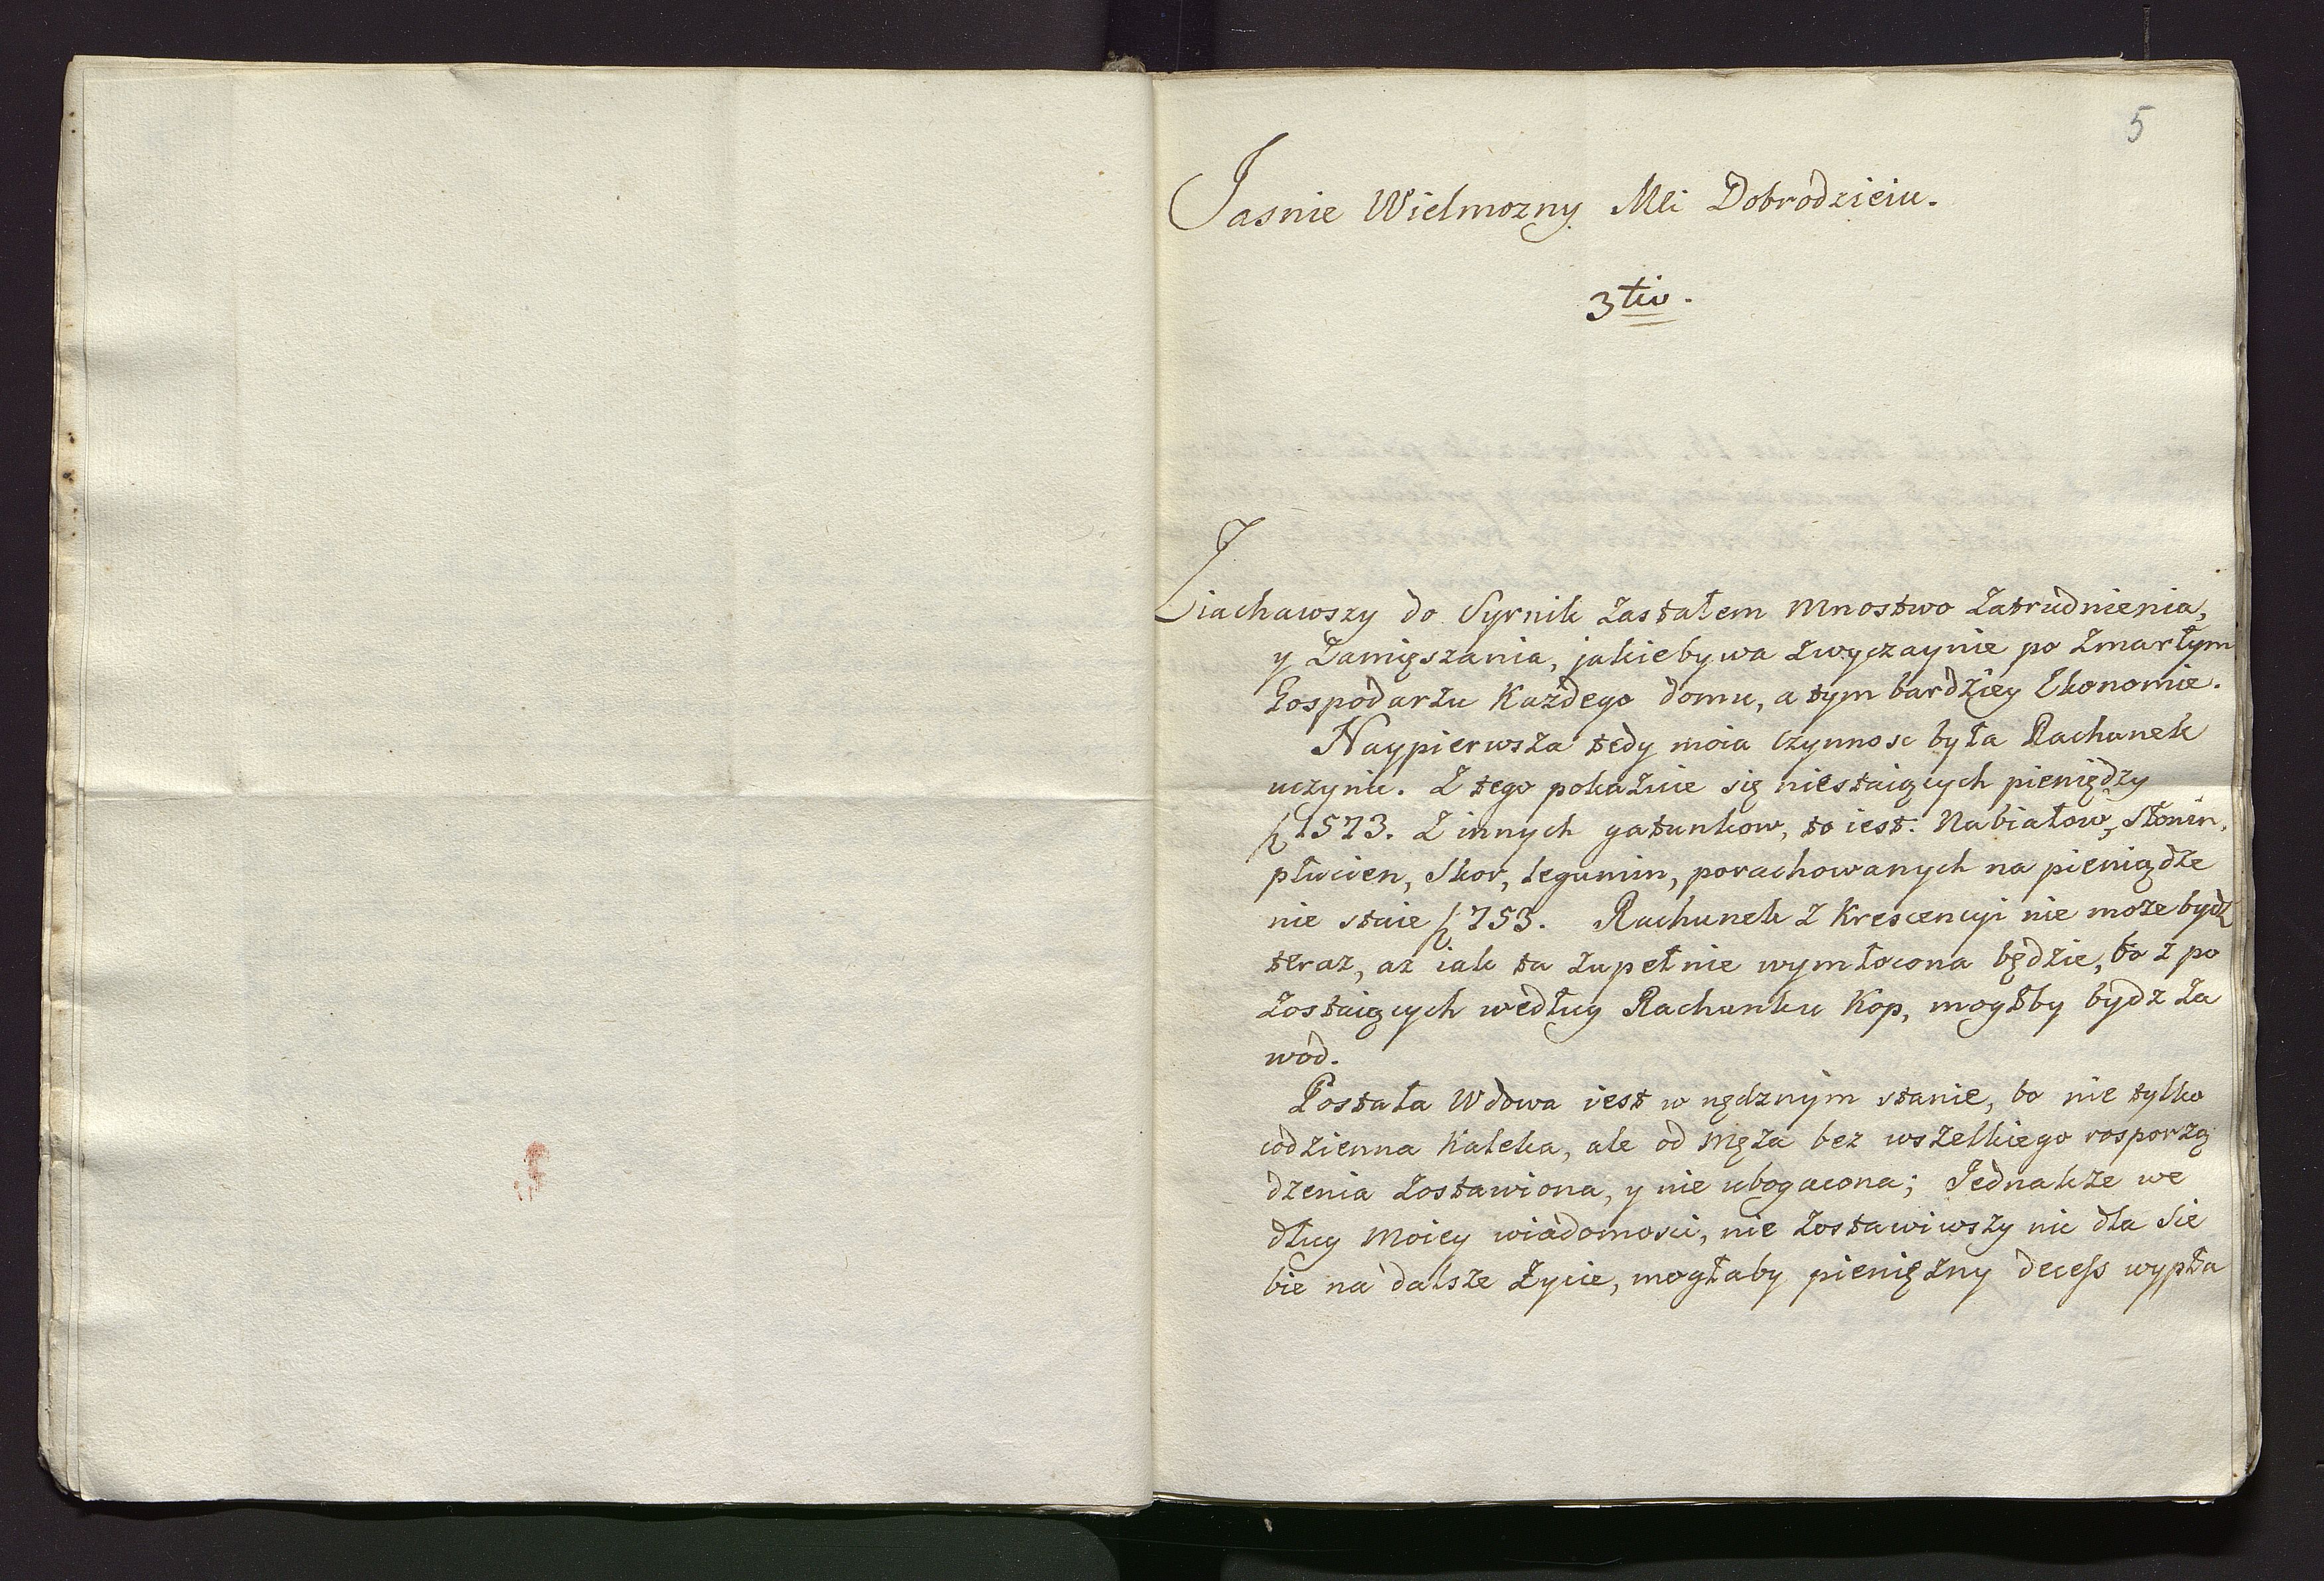 5
Jasnie Wielmozny Mci Dobrodzieiu.
3tio.
Ziachawszy do Syrnik zastałem mnostwo zatrudnienia,
y zamięszania, jakie bywa zwyczaynie po zmarłym
Gospodarzu Każdego domu, a tym bardziey Ekonomie.
Naypierwsza tedy moia czynnosc była Rachunek
uczynic. Z tego pokaźuie się niestaiących pieniędzy
1573. Z innych gatunkow, to iest: Nabiałow, Słonin,
płucien, Skor, legumin, porachowanych na pieniądze
nie staie 753. Rachunek z Krescencyi nie może bydz
teraz, az iak ta zupełnie wymłocona będzie, bo z po
zostaiących według Rachunku Kop, mogłby bydz za
wod.
Postała Wdowa iest w nędznym stanie, bo nie tylko
codzienna Kaleka, ale od męza bez wszelkiego rosporzą
dzenia zostawiona, y nie ubogacona; Jednakze we
dług moiey wiadomosci, nie zostawiwszy nic dla sie
bie na dalsze zycie, mogłaby pienięzny decess wypła